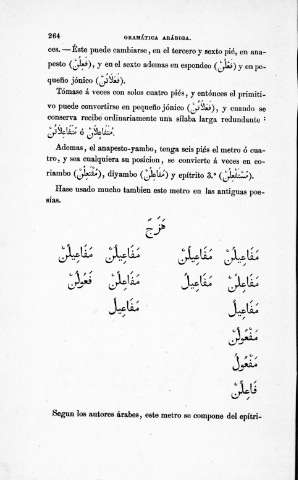 264 GRAMÁTICA ARÁBIGA.
ces.—Éste puede cambiarse, en el tercero y sexto pié, en ana-
pesto (فَعِلُنْ), y en el sexto ademas en espondeo (فَعْلُنْ) y en pe-
queño jónico (فَعِلَاتُنْ).
Tómase á veces con solos cuatro piés, y entónces el primiti-
vo puede convertirse en pequeño jónico (فَعِلَاتُنْ), y cuando se
conserva recibe ordinariamente una sílaba larga redundante:
مُتَفَاعِلَاتُنْ ó مُتَفَاعِلَانْ.
Ademas, el anapesto-yambo, tenga seis piés el metro ó cua-
tro, y sea cualquiera su posicion, se convierte á veces en co-
riambo (مُفْتَعِلُنْ), diyambo (مَفَاعِلُنْ) y epítrito 3.º (مُسْتَفْعِلُنْ).
Hase usado mucho tambien este metro en las antiguas poe-
sías.
هَزَجٌ
مَفَاعِيلُنْ مَفَاعِيلُنْ مَفَاعِيلُنْ مَفَاعِيلُنْ
مَفَاعِلُنْ مَفَاعِيلُ مَفَاعِلُنْ فَعُولُنْ
مَفَاعِيلُ مَفَاعِيلُ
مَفْعُولُنْ
مَفْعُولُ
فَاعِلُنْ
Segun los autores árabes, este metro se compone del epítri-